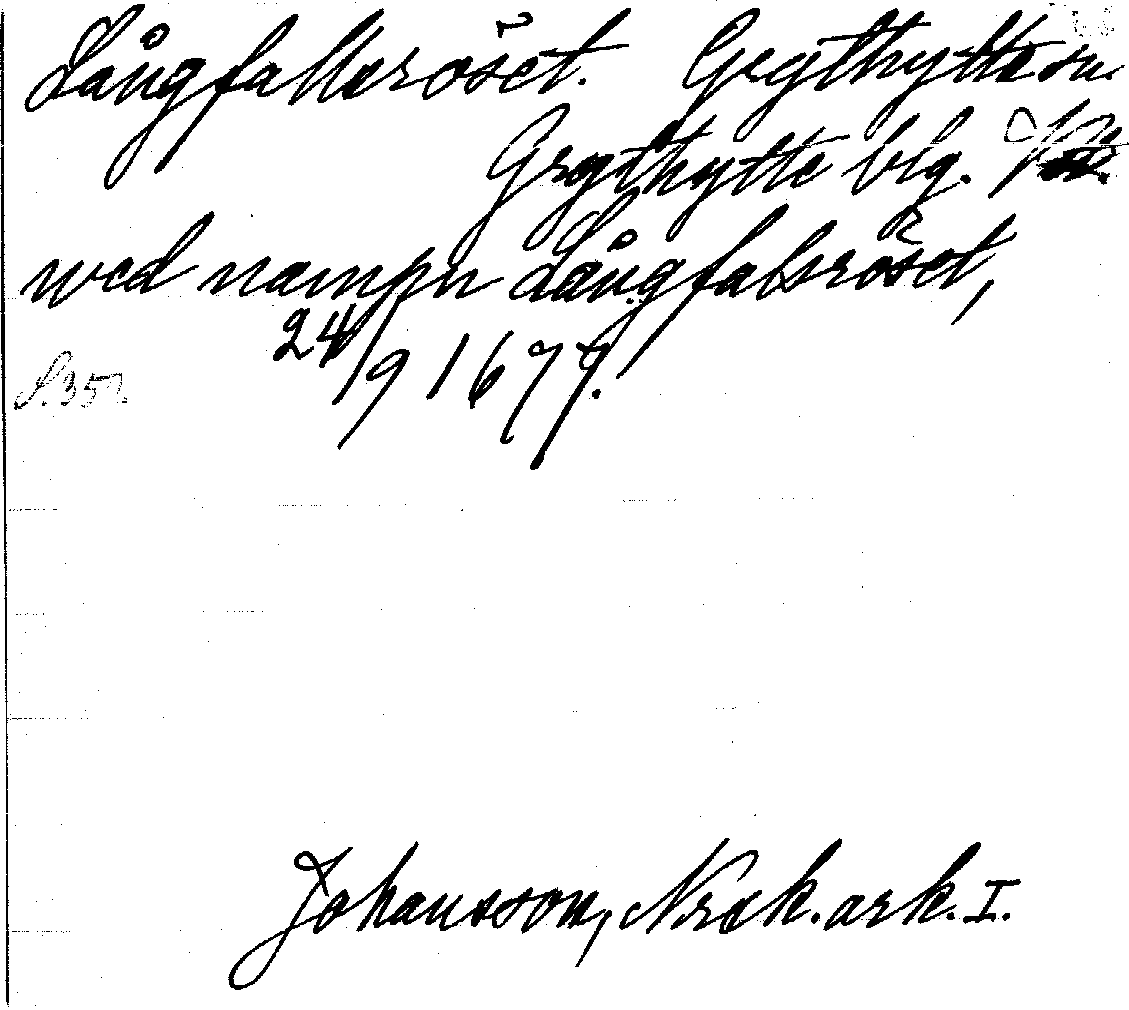 Långfallsröset. Grythytte sn.
Grythytte blg.
wed nampn Långfalsröset,
24/9 1677.
S. 357.
Johansson, Nrck. ark. I.